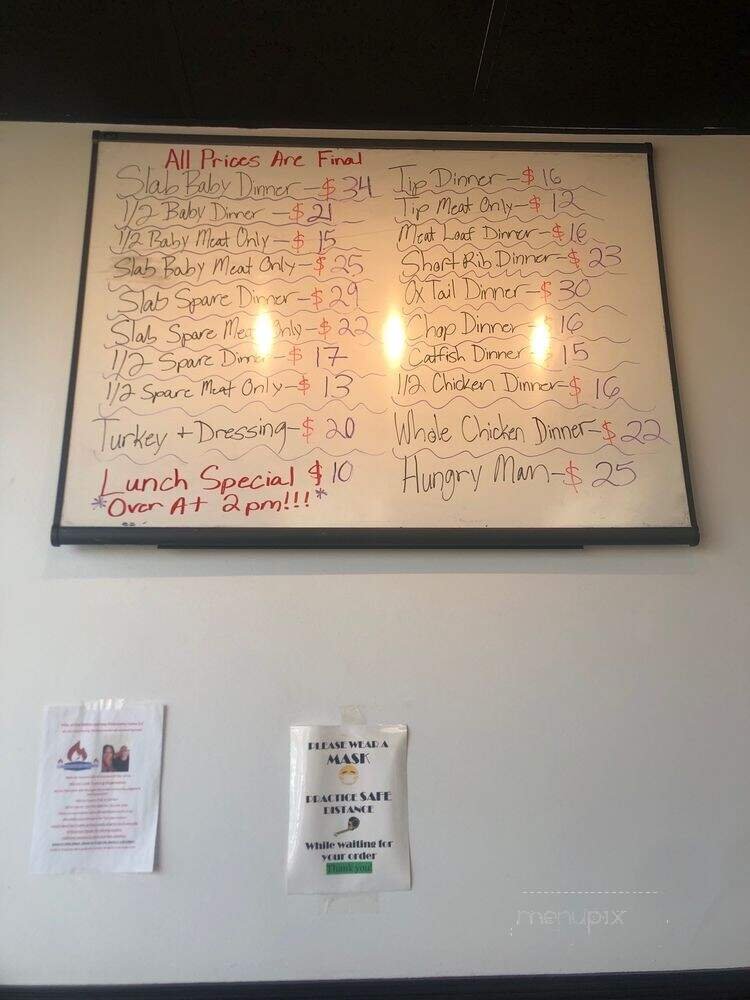 All Prices Are Final
Slab Baby Dinner - $34
1/2 Baby Dinner - $21
1/2 Baby Meat Only - $15
Slab Baby Meat Only - $25
Slab Spare Dinner - $29
Slab Spare Meat Only - $22
1/2 Spare Dinner - $17
1/2 Spare Meat Only - $13
Turkey + Dressing - $20
Lunch Special $10
*Over At 2pm!!!*
Tip Dinner - $16
Tip Meat Only - $12
Meat Loaf Dinner - $16
Short Rib Dinner - $23
Ox Tail Dinner - $30
Chop Dinner - $16
Catfish Dinner - $15
1/2 Chicken Dinner - $16
Whole Chicken Dinner - $22
Hungry Man - $25
PLEASE WEAR A
MASK
PRACTICE SAFE
DISTANCE
While waiting for
your order
Thank you
menupix